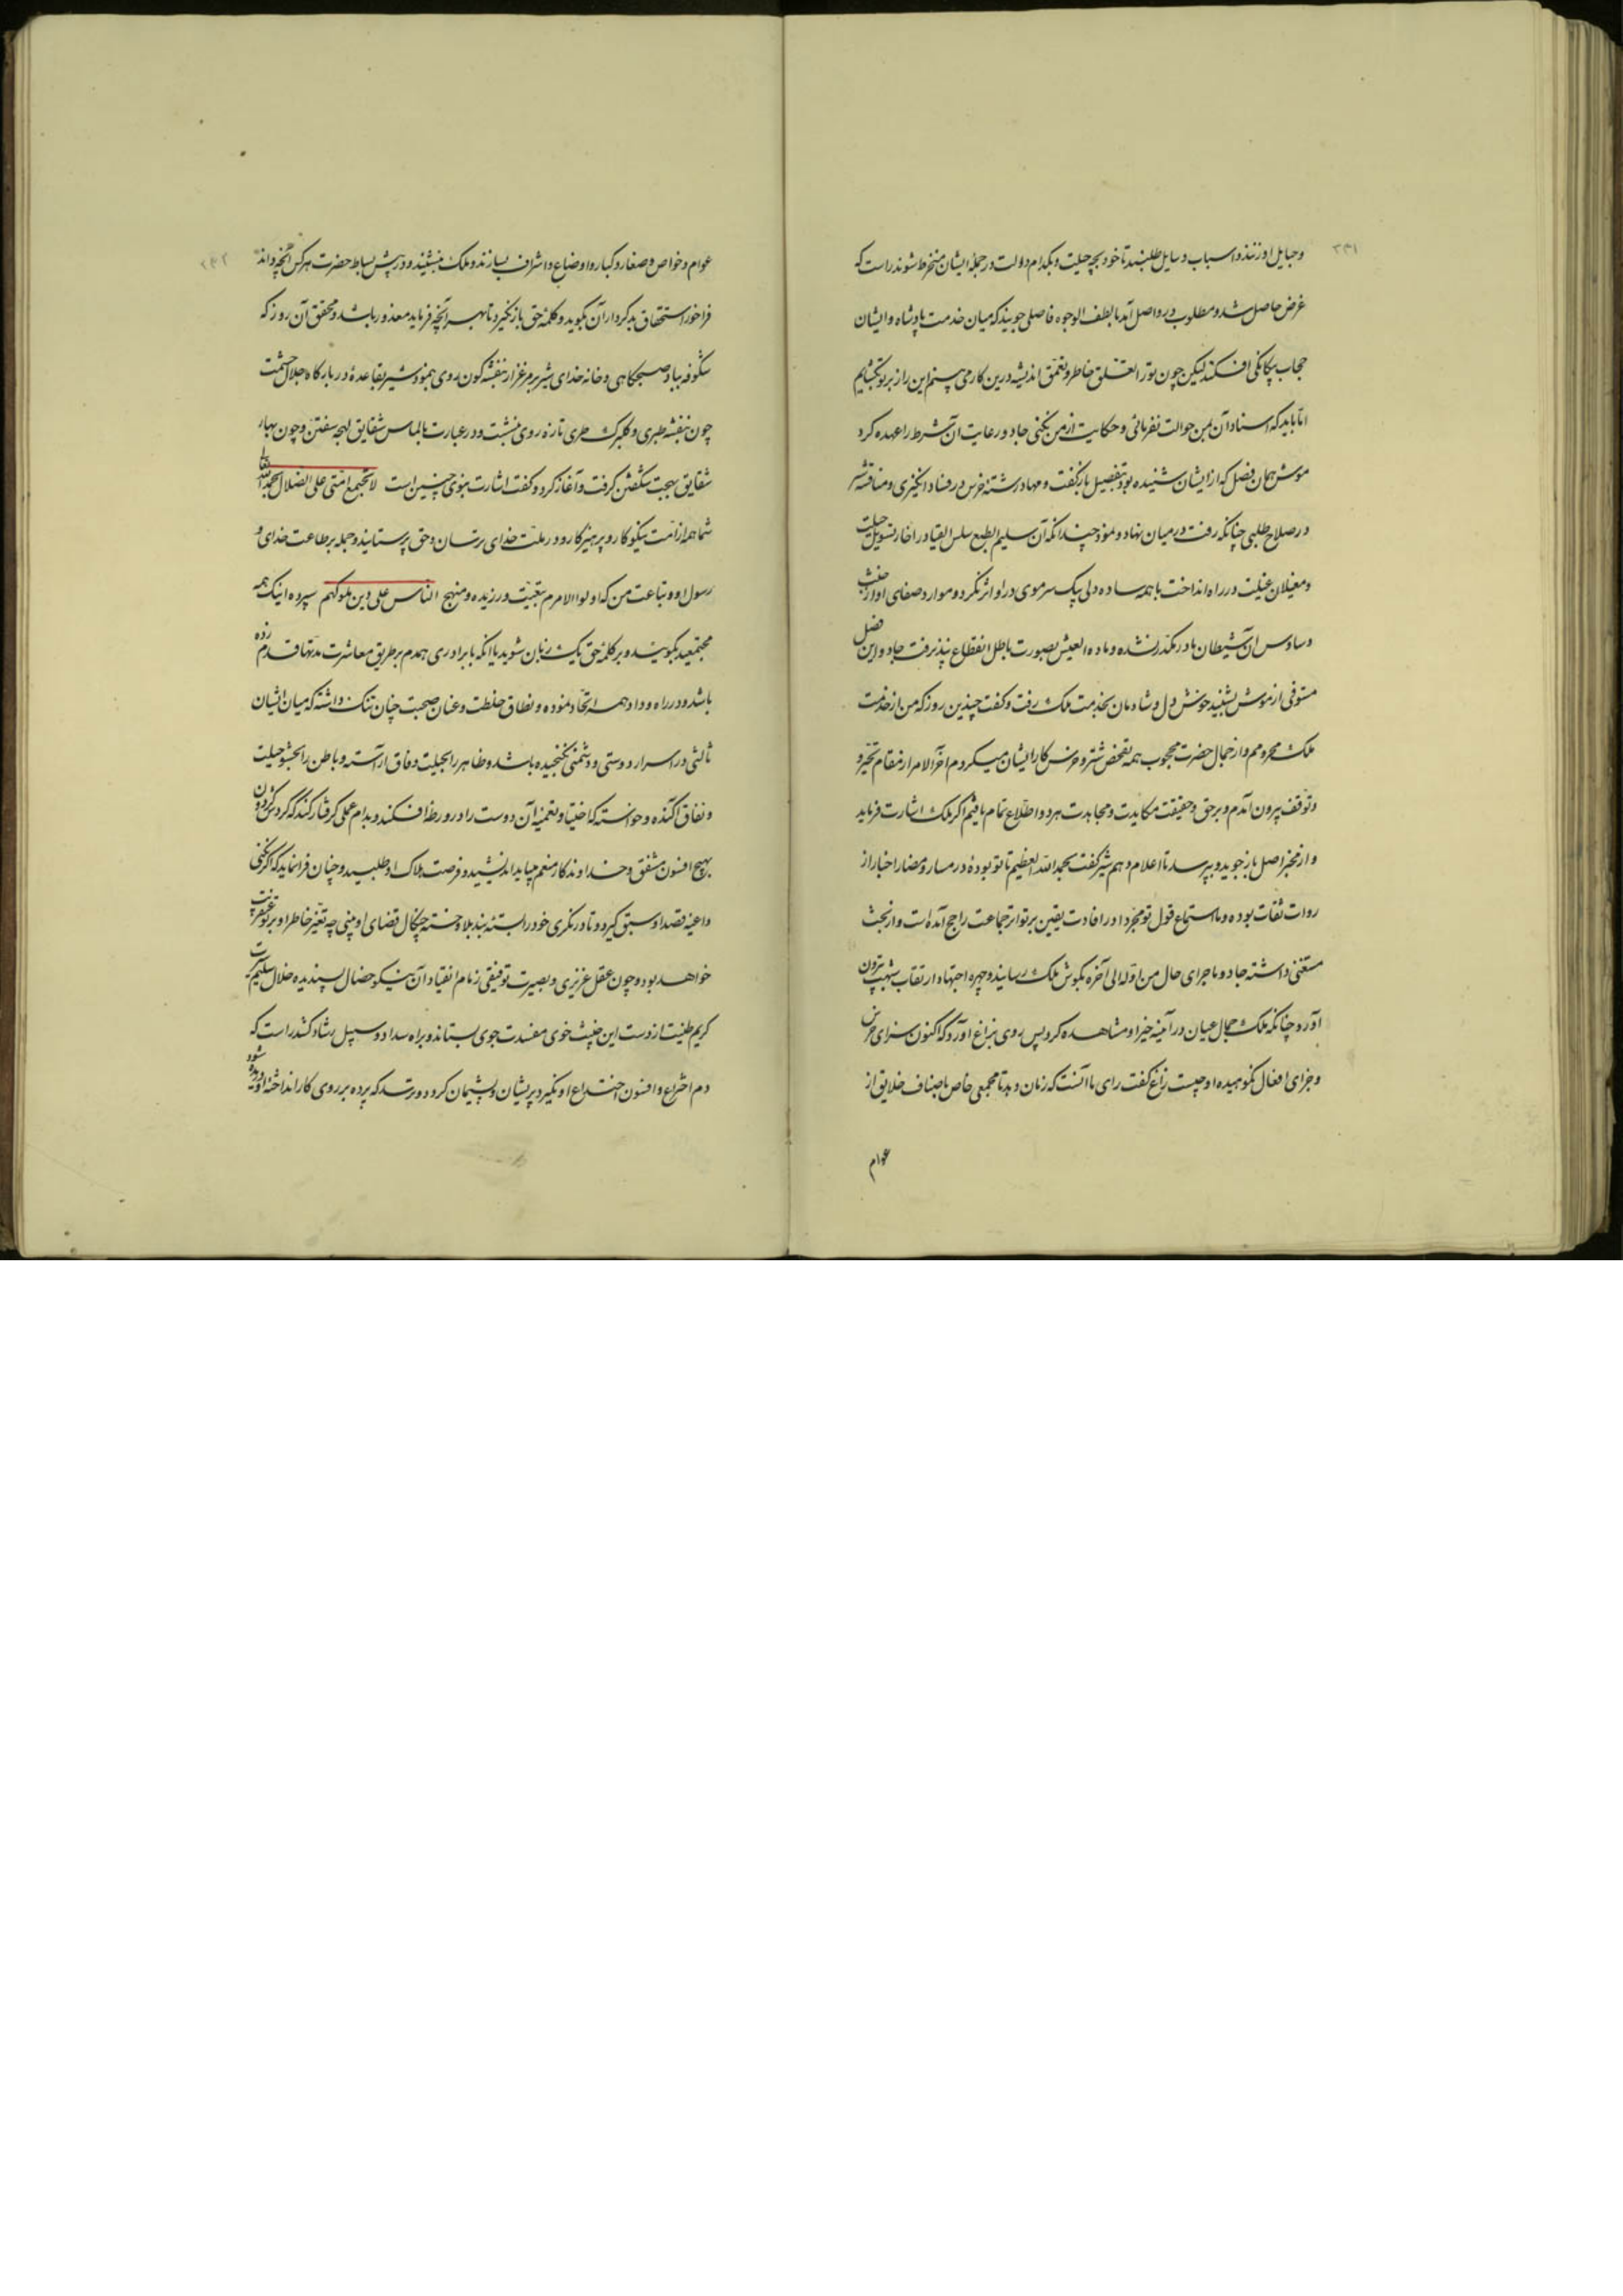 ۲۳۱
و حبایل او زنند و اسباب و سایل طلبند تا خود بچه حیلت و بکدام دولت در جملهٔ ایشان منخرط شوند راست که
غرض حاصل شد و مطلوب در واصل آمد بالطف الوجوه فاصلی جویند که میان خدمت پادشاه و ایشان
حجاب بیکانکی افکند لیکن چون تو را تعلق خاطر و تعمق اندیشه درین کار می بینم این راز بر تو بکشایم
امّا باید که اسناد آن بمن حوالت نفرمائی و حکایت از من نکنی جاد و رعایت آن شرط را عهده کرد
موش همان فصل که از ایشان شنیده بود بتفصیل باز کفت و مهاد رشتهٔ خرس در فساد انکیزی و مناقشهٔ شتر
در صلاح طلبی چنانکه رفت در میان نهاد و نمود چندانکه آن سلیم الطبع سلس القیاد را خار تسویل حیلت
و مغیلان غیلت در راه انداخت با همه ساده دلی یک سر موی در او اثر نکرد و موارد صفای او از خبث
وساوس آن شیطان مادر مکدر نشده و مادهٔ العیش بصورت باطل انقطاع نپذیرفت جاد و این فصل
مستوفی از موش بشنید خوش دل و شادمان بخدمت ملک رفت و کفت چندین روز که من از خدمت
ملک محرومم و از جمال حضرت محجوب همه تفحص شتر و خرس کار ایشان میکردم آخر الامر از مقام تحیر و
توقف بیرون آمدم و بر حق و حقیقت مکایدت و مجاهدت هر دو اطلاع تمام یافتم اکر ملک اشارت فرماید
و از مخبر اصل باز جوید و بپرسد تا اعلام دهم شیر کفت بحمد الله العظیم تا تو بودهٔ در مسار و مضار اخبار از
روات ثقات بوده و ما استماع قول تو مجرد او را افادت یقین بر تواتر جماعت راجح آمده است و از بحث
مستغنی داشته جاد و ماجرای حال من اوله الی آخره بکوش ملک رسانید و چهره اجتهاد از نقاب شبهت بیرون
آورد چنانکه ملک جمال عیان در آیینه خبر او مشاهده کرد پس روی بزاغ آورد که اکنون سزای خرس
و جزای افعال نکوهیده او چیست زاغ کفت رای ما آنست که زمان دهد تا مجمعی خاص باصناف خلایق از
عوام
۲۳۲
عوام و خواص و صغار و کبار و اوضاع و اشراف بسازند و ملک بنشیند و در پیش بساط حضرت هر کس آنچه داند
فراخور استحقاق بدکرداران بکوید و کلمهٔ حق باز نکیرد تا بهر آنچه فرماید معذور باشد و محقق آن روز که
شکوفه بباد صبحکاهی و خانه خدای شیر بر مرغزار بنفشه کون روی بنمود شیر بقاعده در بارکاه جلال حشمت
چون بنفشه طبری و کلبرک طری تازه روی بنشست و در عبارت بالماس شقایق لهجه سفتن و چون بهار
شقایق بهجت شکفتن کرفت و آغاز کرد و کفت اشارت نبوی چنین است لا تجتمع امتی علی الضلال بحمد الله تعالی
شما همه از امت نیکوکار و پرهیزکار و در ملت خدای ترسان و حق پرستانید و جمله بر طاعت خدای و
رسول او و تباعت من که اولوا الامرم بتعبیت ورزیده و منهج الناس علی دین ملوکهم سپرده اینک همه
مجتمعید بکویید و بر کلمهٔ حق یک زبان شوید باآنکه با برادری همدم بر طریق معاشرت مدتها قدم زده
باشد و در راه و داد همه اتحاد نموده و نطاق خلطت و عنان صحبت چنان تنک داشته که میان ایشان
ثالثی در اسرار دوستی و دشمنی نکنجیده باشد و ظاهر را بحیلت وفاق آراسته و باطن را بحشو حیلت
و نفاق آکنده و خواسته که اختیا و تعمیه آن دوست را در ورطهٔ افکند و بدام عملی کرفتار کند که کردن کردون
بهیچ افسون مشفق و خداوندکار منعم میباید اندیشید و فرصت هلاک او طلبید و چنان فرا نماید که اکر نکنی
داعیه قصد او سبق کیرد و تا در نکری خود را بستهٔ بند بلا و خستهٔ چنکال قضای او بینی چه تغیر خاطر او بر تو
خواهد بود و چون عقل غریزی و بصیرت توفیقی زمام انقیاد آن نیکو خصال پسندیده خلال سلیم
کریم طینت از دست این خبیث خوی مفسدت جوی بستاند و براه سداد و سبیل رشاد کشد راست که
دم اختراع و افسون اختداع او نکیرد پریشان و پشیمان کردد و ترسد که پرده بر روی کار انداخته او دریده شود